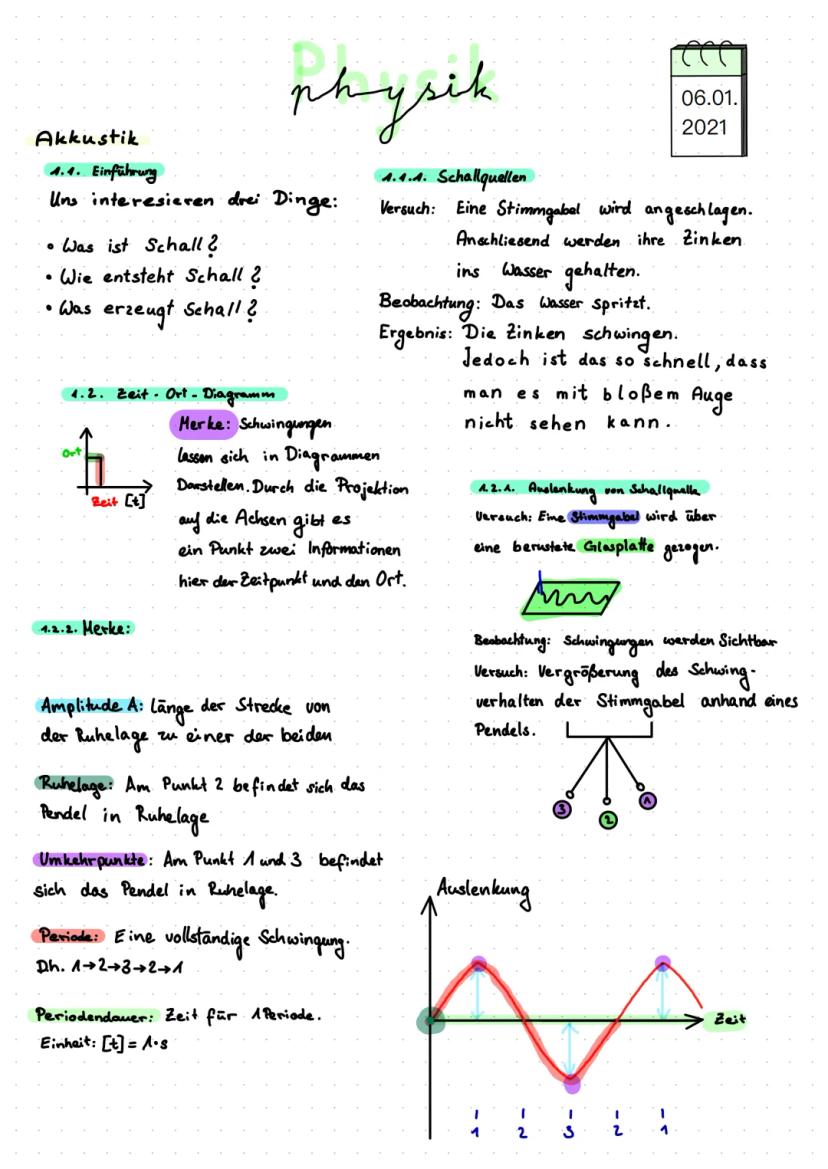 Physik
physik
06.01.
2021
Akkustik
1.1. Einführung
Uns interesieren drei Dinge:
• Was ist Schall?
• Wie entsteht Schall?
• Was erzeugt Schall?
1.1.1. Schallquellen
Versuch: Eine Stimmgabel wird angeschlagen.
Anschliesend werden ihre Zinken
ins Wasser gehalten.
Beobachtung: Das Wasser spritzt.
Ergebnis: Die Zinken schwingen.
Jedoch ist das so schnell, dass
man es mit bloßem Auge
nicht sehen kann.
1.2. Zeit-Ort-Diagramm
Ort
Zeit [t]
Merke: Schwingungen
lassen sich in Diagrammen
Darstellen. Durch die Projektion
auf die Achsen gibt es
ein Punkt zwei Informationen
hier der Zeitpunkt und den Ort.
1.2.1. Auslenkung von Schallquelle
Versuch: Eine Stimmgabel wird über
eine berustete Glasplatte gezogen.
Beobachtung: Schwingungen werden Sichtbar
Versuch: Vergrößerung des Schwing-
verhalten der Stimmgabel anhand eines
Pendels.
3
2
1
1.2.2. Merke:
Amplitude A: länge der Strecke von
der Ruhelage zu einer der beiden
Ruhelage: Am Punkt 2 befindet sich das
Pendel in Ruhelage
Umkehrpunkte: Am Punkt 1 und 3 befindet
sich das Pendel in Ruhelage.
Periode: Eine vollständige Schwingung.
Dh. 1→2→3→2→1
Periodendauer: Zeit für 1 Periode.
Einheit: [t] = 1·s
Auslenkung
Zeit
1 2 3 2 1